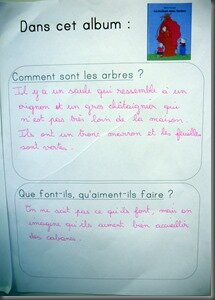 Dans cet album :
Comment sont les arbres ?
Il y a un saule qui ressemble à un
oignon et un gros châtaignier qui
n'est pas très loin de la maison.
Ils ont un tronc marron et les feuilles
sont vertes.
Que font-ils, qu'aiment-ils faire ?
On ne sait pas ce qu'ils font, mais on
imagine qu'ils aiment bien accueillir
des cabanes.